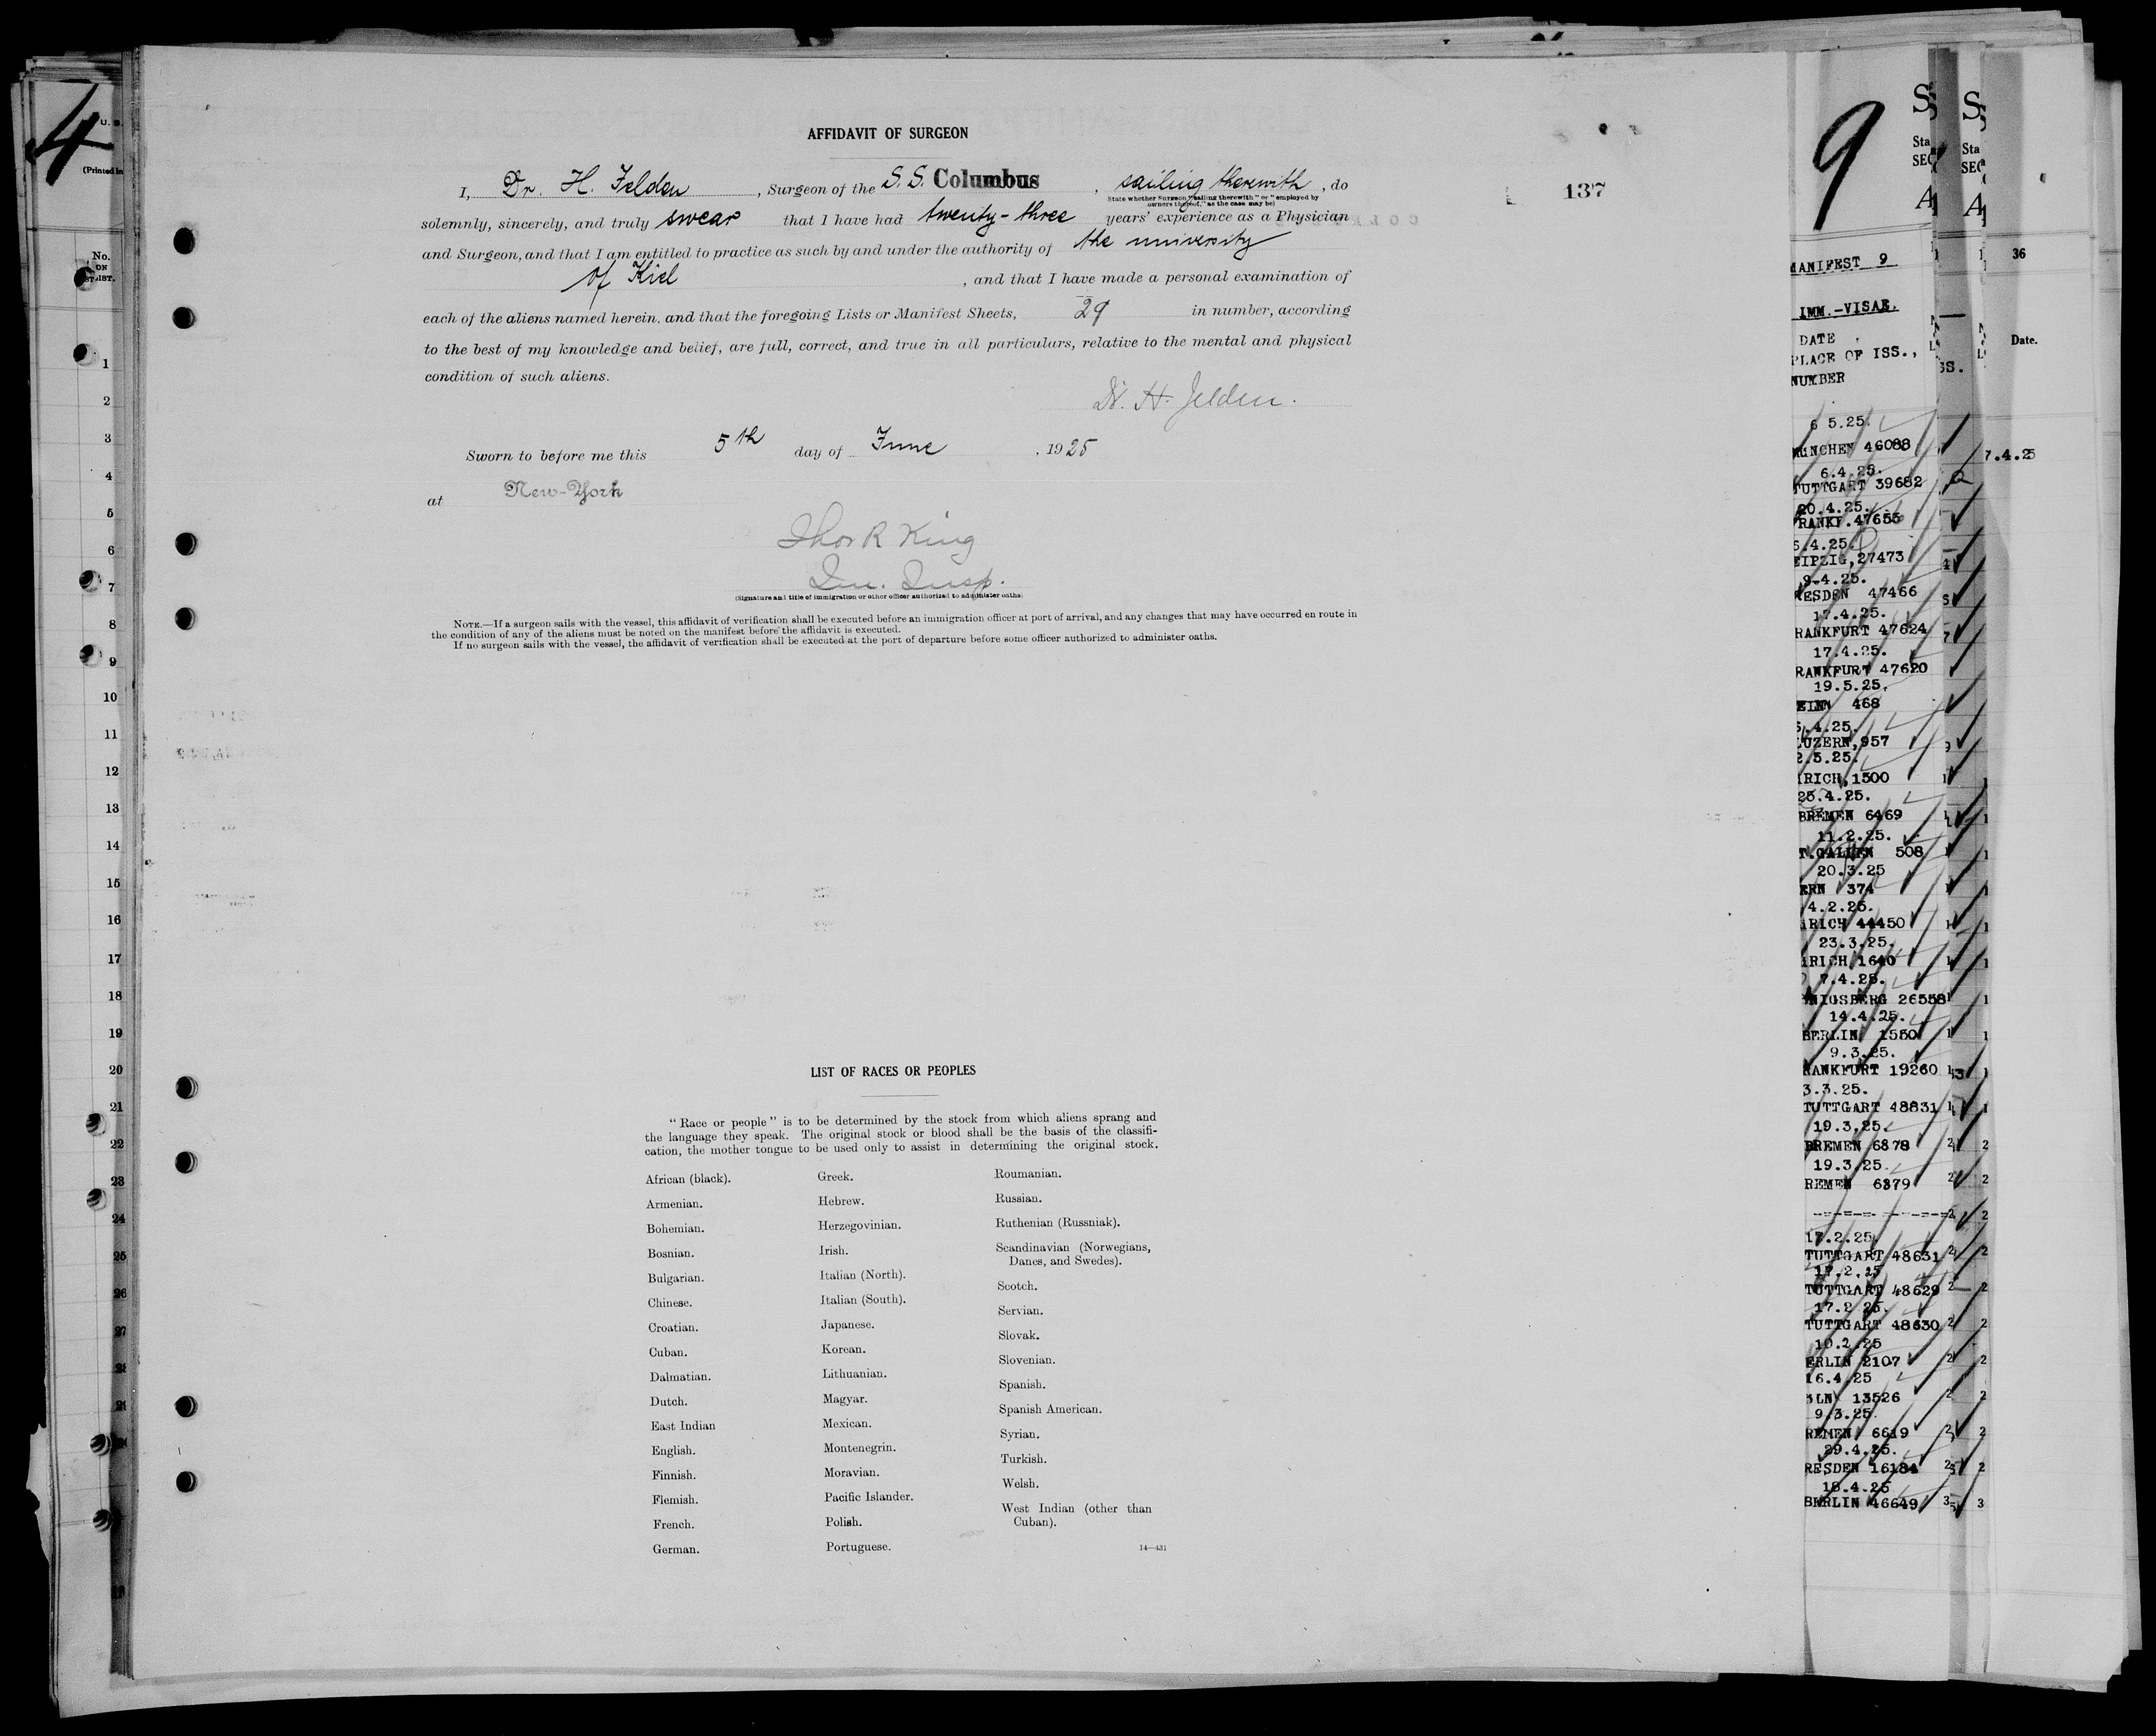 4
U. S.
(Printed in
No.
ON
LIST.
1
2
3
4
5
6
7
8
9
10
11
12
13
14
15
16
17
18
19
20
21
22
23
24
25
26
27
AFFIDAVIT OF SURGEON
137
I, Dr. H. Jelden, Surgeon of the S.S. Columbus, sailing therewith, do
State whether Surgeon "sailing therewith" or "employed by
owners thereof," as the case may be)
solemnly, sincerely, and truly swear that I have had twenty-three years' experience as a Physician
and Surgeon, and that I am entitled to practice as such by and under the authority of the university
of Kiel, and that I have made a personal examination of
each of the aliens named herein, and that the foregoing Lists or Manifest Sheets, 29 in number, according
to the best of my knowledge and belief, are full, correct, and true in all particulars, relative to the mental and physical
condition of such aliens.
Dr. H. Jelden.
Sworn to before me this 5th day of June, 1925
at New-York
Thos R King
Im. Insp.
(Signature and title of immigration or other officer authorized to administer oaths)
NOTE.—If a surgeon sails with the vessel, this affidavit of verification shall be executed before an immigration officer at port of arrival, and any changes that may have occurred en route in
the condition of any of the aliens must be noted on the manifest before the affidavit is executed.
If no surgeon sails with the vessel, the affidavit of verification shall be executed at the port of departure before some officer authorized to administer oaths.
LIST OF RACES OR PEOPLES
"Race or people" is to be determined by the stock from which aliens sprang and
the language they speak. The original stock or blood shall be the basis of the classifi-
cation, the mother tongue to be used only to assist in determining the original stock.
African (black).
Armenian.
Bohemian.
Bosnian.
Bulgarian.
Chinese.
Croatian.
Cuban.
Dalmatian.
Dutch.
East Indian
English.
Finnish.
Flemish.
French.
German.
Greek.
Hebrew.
Herzegovinian.
Irish.
Italian (North).
Italian (South).
Japanese.
Korean.
Lithuanian.
Magyar.
Mexican.
Montenegrin.
Moravian.
Pacific Islander.
Polish.
Portuguese.
Roumanian.
Russian.
Ruthenian (Russniak).
Scandinavian (Norwegians,
Danes, and Swedes).
Scotch.
Servian.
Slovak.
Slovenian.
Spanish.
Spanish American.
Syrian.
Turkish.
Welsh.
West Indian (other than
Cuban).
14—431
9
Sta
SEC
MANIFEST 9
IMM.-VISAE.
DATE
PLACE OF ISS.,
NUMBER
6 5.25.
MÜNCHEN 46088
6.4.25.
TUTTGART 39682
20.4.25.
RANKF.47655
6.4.25.
EIPZIG,27473
9.4.25.
RESDEN 47466
17.4.25.
RANKFURT 47624
17.4.25.
RANKFURT 47620
19.5.25.
468
6.4.25.
LUZERN,957
2.5.25.
RICH,1500
25.4.25.
BREMEN 6469
11.2.25.
T.GALLEN 508
20.3.25
ERN 374
4.2.25.
RICH 44450
23.3.25.
RICH 1640
7.4.25.
NIGSBERG 26558
14.4.25.
BERLIN 1550
9.3.25.
RANKFURT 19260
3.3.25.
TUTTGART 48831
19.3.25.
BREMEN 6878
19.3.25.
REMEN 6379
17.2.25.
TUTTGART 48631
17.2.25
TUTTGART 48629
17.2.25.
TUTTGART 48630
10.2.25
ERLIN 2107
16.4.25
LN 13526
9.3.25.
REMEN 6619
29.4.25.
RESDEN 16184
18.4.25
BERLIN 46649
Sta
SEC
36
Date.
7.4.25